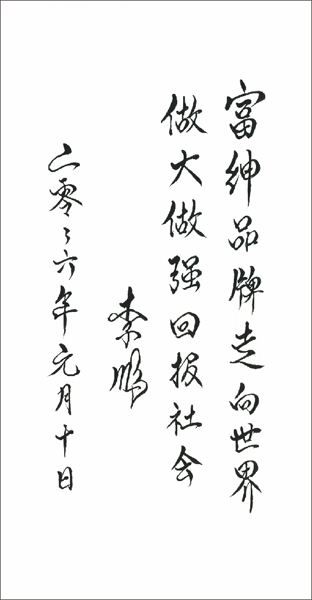 富绅品牌走向世界
做大做强回报社会
李鹏
二零零六年元月十日